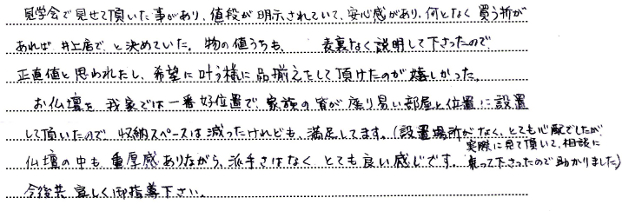 見学会で見せて頂いた事があり、値段が明示されていて、安心感があり、何となく買う所が
あれば 井上店で、と決めていた。物の値うちも、 表裏なく説明して下さったので
正直値と思われたし、希望に叶う様に品揃えをして頂けたのが嬉しかった。
お仏壇を 我家では一番好位置で、家族の皆が座り易い部屋と位置に設置
して頂いたので、収納スペースは減ったけれども、満足してます。(設置場所がなく、とても心配でしたが、
実際に見て頂いて、相談に
仏壇の中も 重厚感ありながら、派手さはなく とても良い感じです。 乗って下さったので助かりました)
今後共 宜しく御指導下さい。